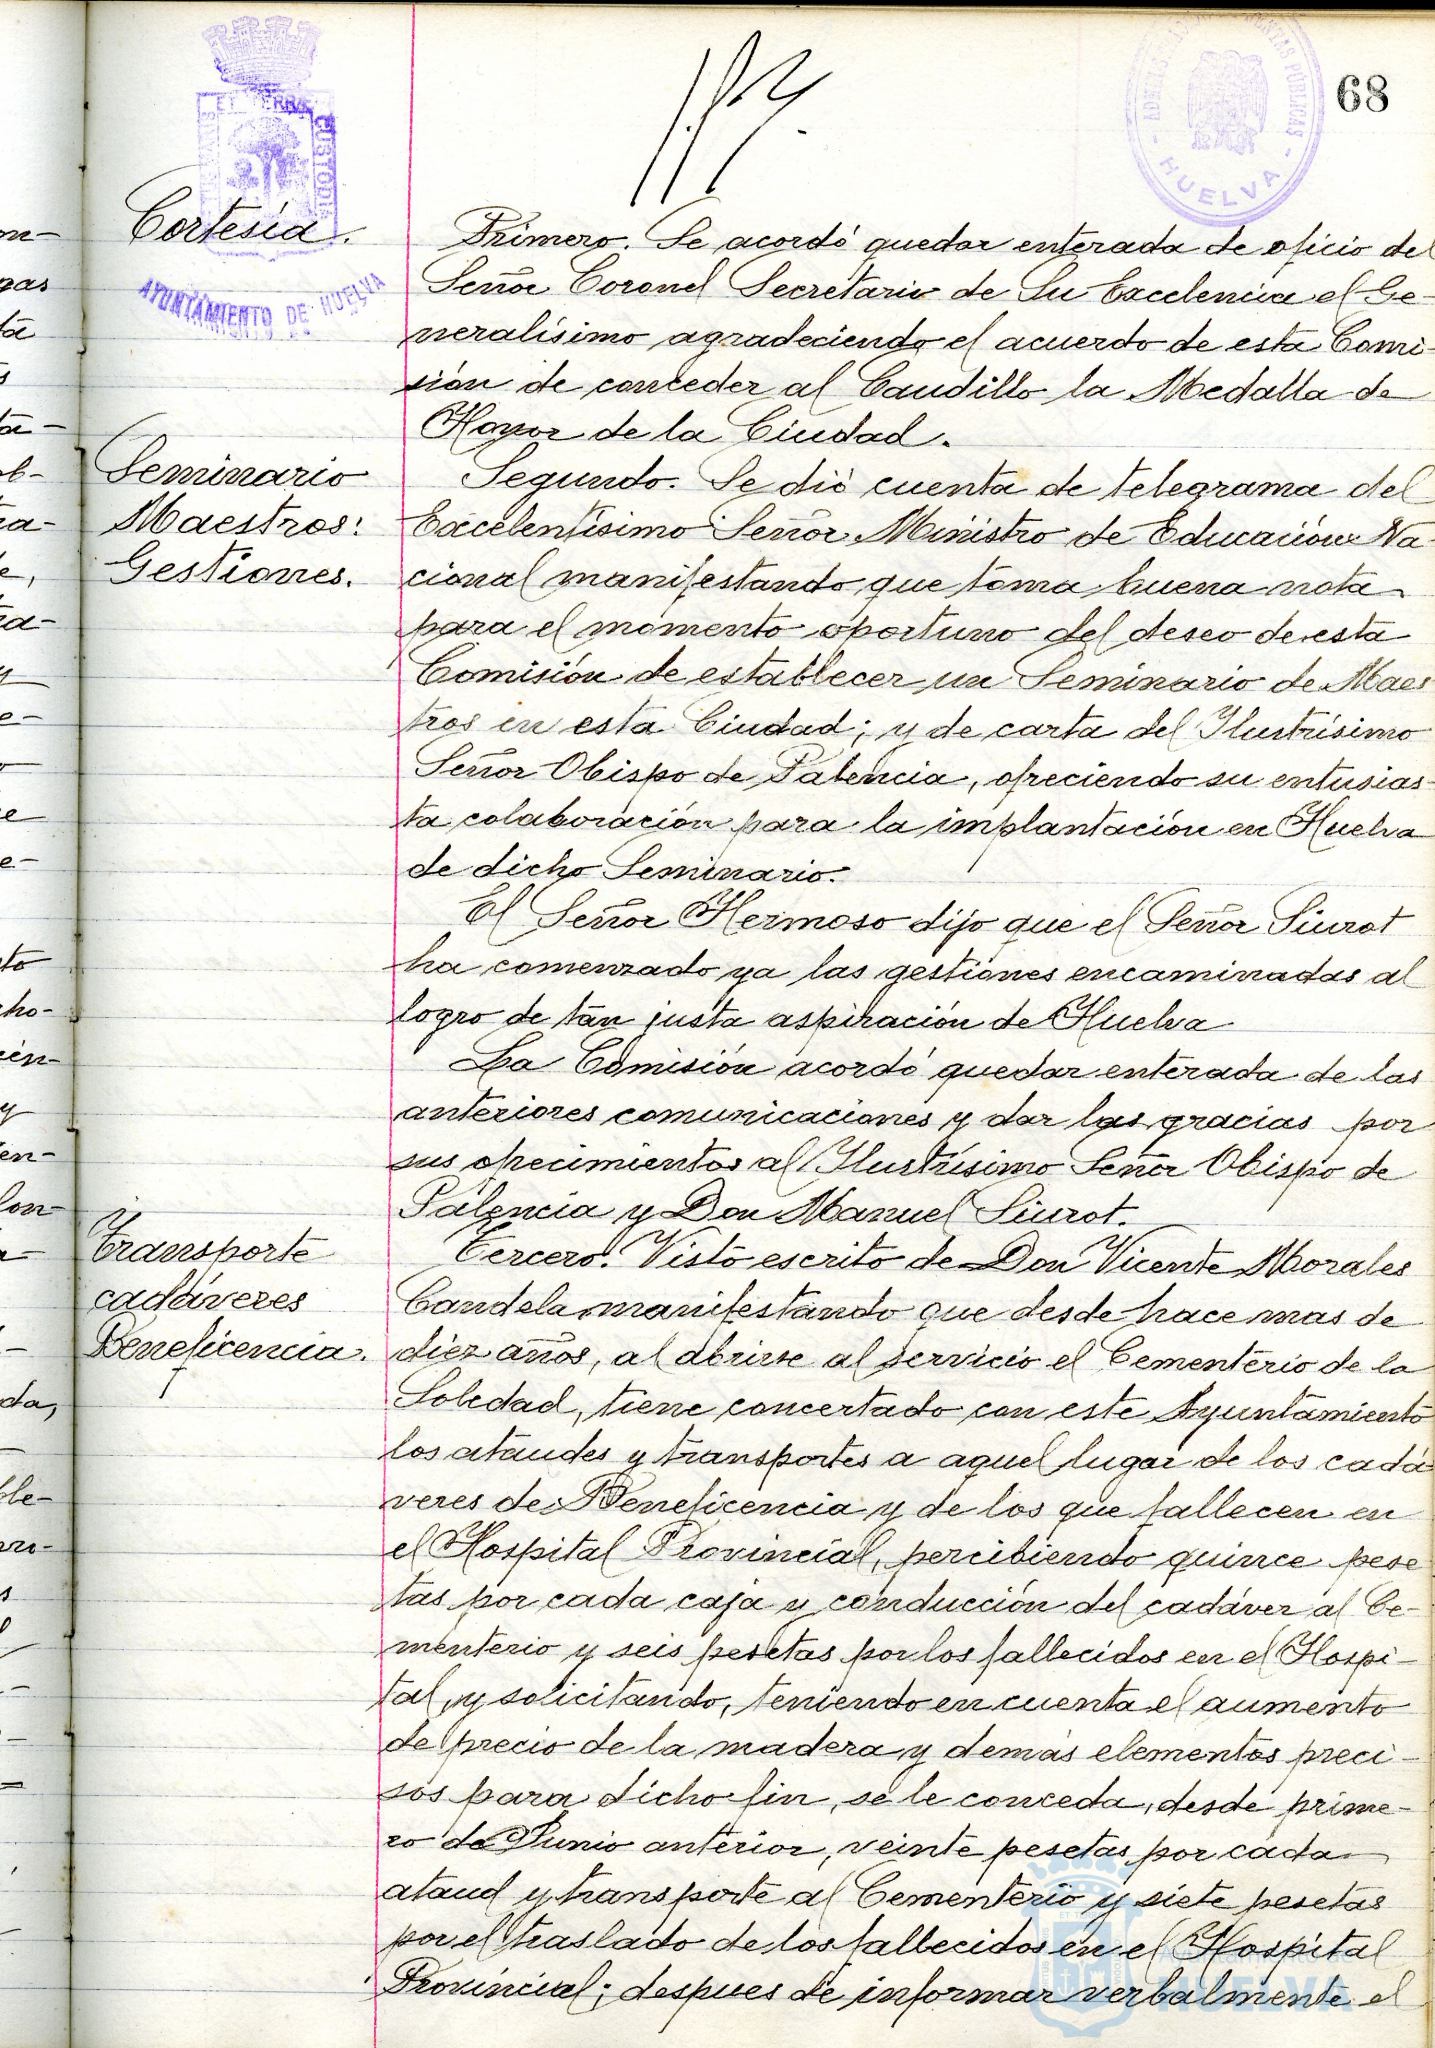 68
ET TERRA
CUSTODIA
AYUNTAMIENTO DE HUELVA
HUELVA
Cortesía.
Primero. Se acordó quedar enterada de oficio del
Señor Coronel Secretario de Su Excelencia el Ge-
neralísimo agradeciendo el acuerdo de esta Comi-
sión de conceder al Caudillo la Medalla de
Honor de la Ciudad.
Seminario
Maestros:
Gestiones.
Segundo. Se dió cuenta de telegrama del
Excelentísimo Señor Ministro de Educación Na-
cional manifestando que toma buena nota
para el momento oportuno del deseo de esta
Comisión de establecer un Seminario de Maes
tros en esta Ciudad; y de carta del Ilustrísimo
Señor Obispo de Palencia, ofreciendo su entusias-
ta colaboración para la implantación en Huelva
de dicho Seminario.
El Señor Hermoso dijo que el Señor Siurot
ha comenzado ya las gestiones encaminadas al
logro de tan justa aspiración de Huelva
La Comisión acordó quedar enterada de las
anteriores comunicaciones y dar las gracias por
sus ofrecimientos al Ilustrísimo Señor Obispo de
Palencia y Don Manuel Siurot.
Transporte
cadáveres
Beneficencia.
Tercero. Visto escrito de Don Vicente Morales
Candela manifestando que desde hace mas de
diez años, al abrirse al servicio el Cementerio de la
Soledad, tiene concertado con este Ayuntamiento
los ataudes y transportes a aquel lugar de los cadá
veres de Beneficencia y de los que fallecen en
el Hospital Provincial, percibiendo quince pese
tas por cada caja y conducción del cadáver al Ce-
menterio y seis pesetas por los fallecidos en el Hospi-
tal, y solicitando, teniendo en cuenta el aumento
de precio de la madera y demás elementos preci-
sos para dicho fin, se le conceda, desde prime-
ro de Junio anterior, veinte pesetas por cada
ataud y transporte al Cementerio y siete pesetas
por el traslado de los fallecidos en el Hospital
Provincial; despues de informar verbalmente el